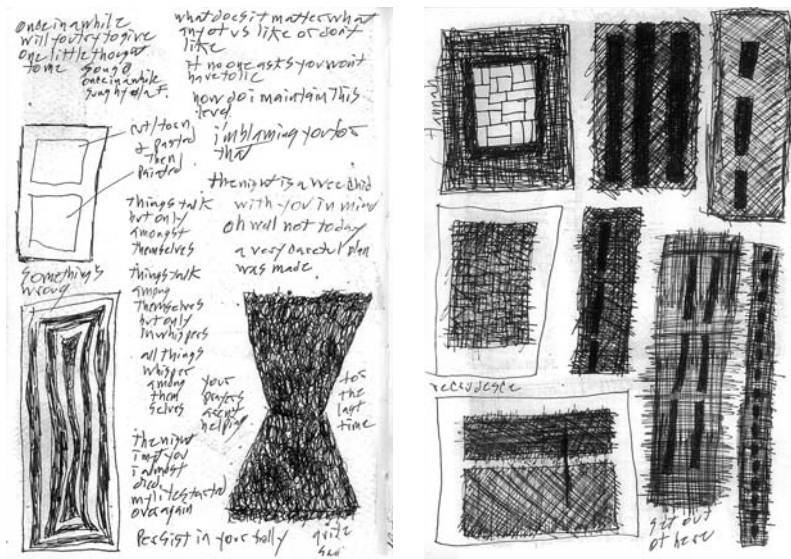 once in a while
will you try to give
one little thought
to me
song @
once in a while
sung by
what does it matter what
any of us like or don't
like
if no one asks you won't
have to lie
how do i maintain this
level
i'm blaming you for
that
cut/torn
& pasted
then
painted
the night is a
with you in mind
oh well not today
a very careful plan
was made.
things talk
but only
amongst
themselves
something's
wrong
things talk
among
themselves
but only
in whispers
all things
whisper
among
them
selves
your
prayers
arent
helping
for
the
last
time
the night
i met you
i almost
died.
my life started
over again
Persist in your folly
quite
Hannah
recrudesce
get out
of here